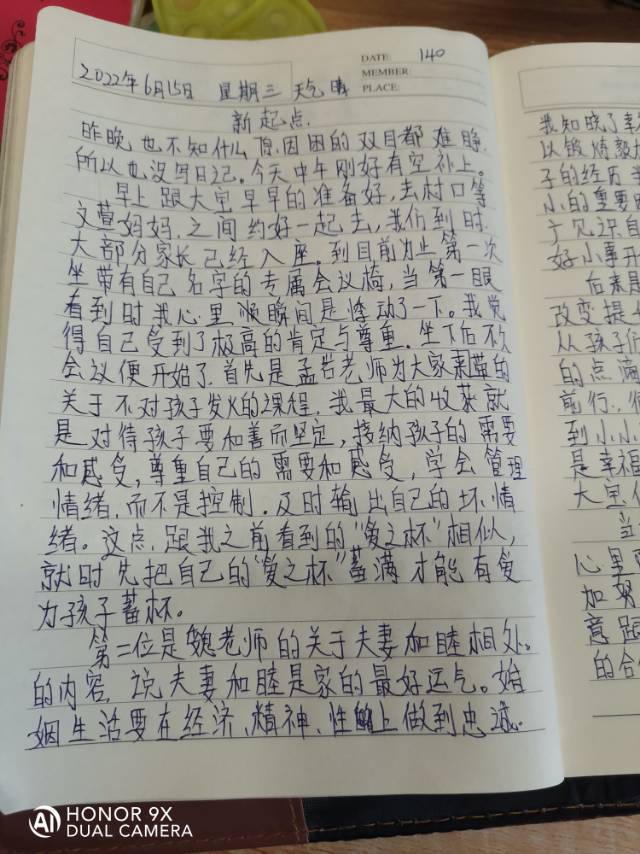 DATE: 140
MEMBER:
PLACE:
2022年6月15日 星期三 天气晴
新起点.
昨晚也不知什么原因困的双目都难睁.
所以也没写日记。今天中午刚好有空补上。
早上跟大宝早早的准备好,去村口等
文萱妈妈.之间约好一起去,我们到时.
大部分家长已经入座。到目前为止第一次
坐带有自己名字的专属会议椅,当第一眼
看到时我心里顺瞬间是悸动了一下。我觉
得自己受到了极高的肯定与尊重.坐下后不久
会议便开始了.首先是孟老师为大家的
关于不对孩子发火的课程.我最大的收获就
是对待孩子要和善而坚定,接纳孩子的需要
和感受,尊重自己的需要和感受,学会管理
情绪.而不是控制.及时输出自己的坏情
绪。这点.跟我之前看到的"爱之杯"相似,
就时先把自己的"爱之杯"蓄满才能有爱
为孩子蓄杯。
第二位是魏老师的关于夫妻和睦相处。
的内容.说夫妻和睦是家的最好运气。婚
姻生活要在经济、精神、性上做到忠诚.
我知晓了
以锻炼
子的经历
小的重要
于
好小事开
后来是
改变提
从孩子们
的点滴
前行.
到小小
是幸福
大宝
当
心里
加努
意跟
的合
AI HONOR 9X
DUAL CAMERA